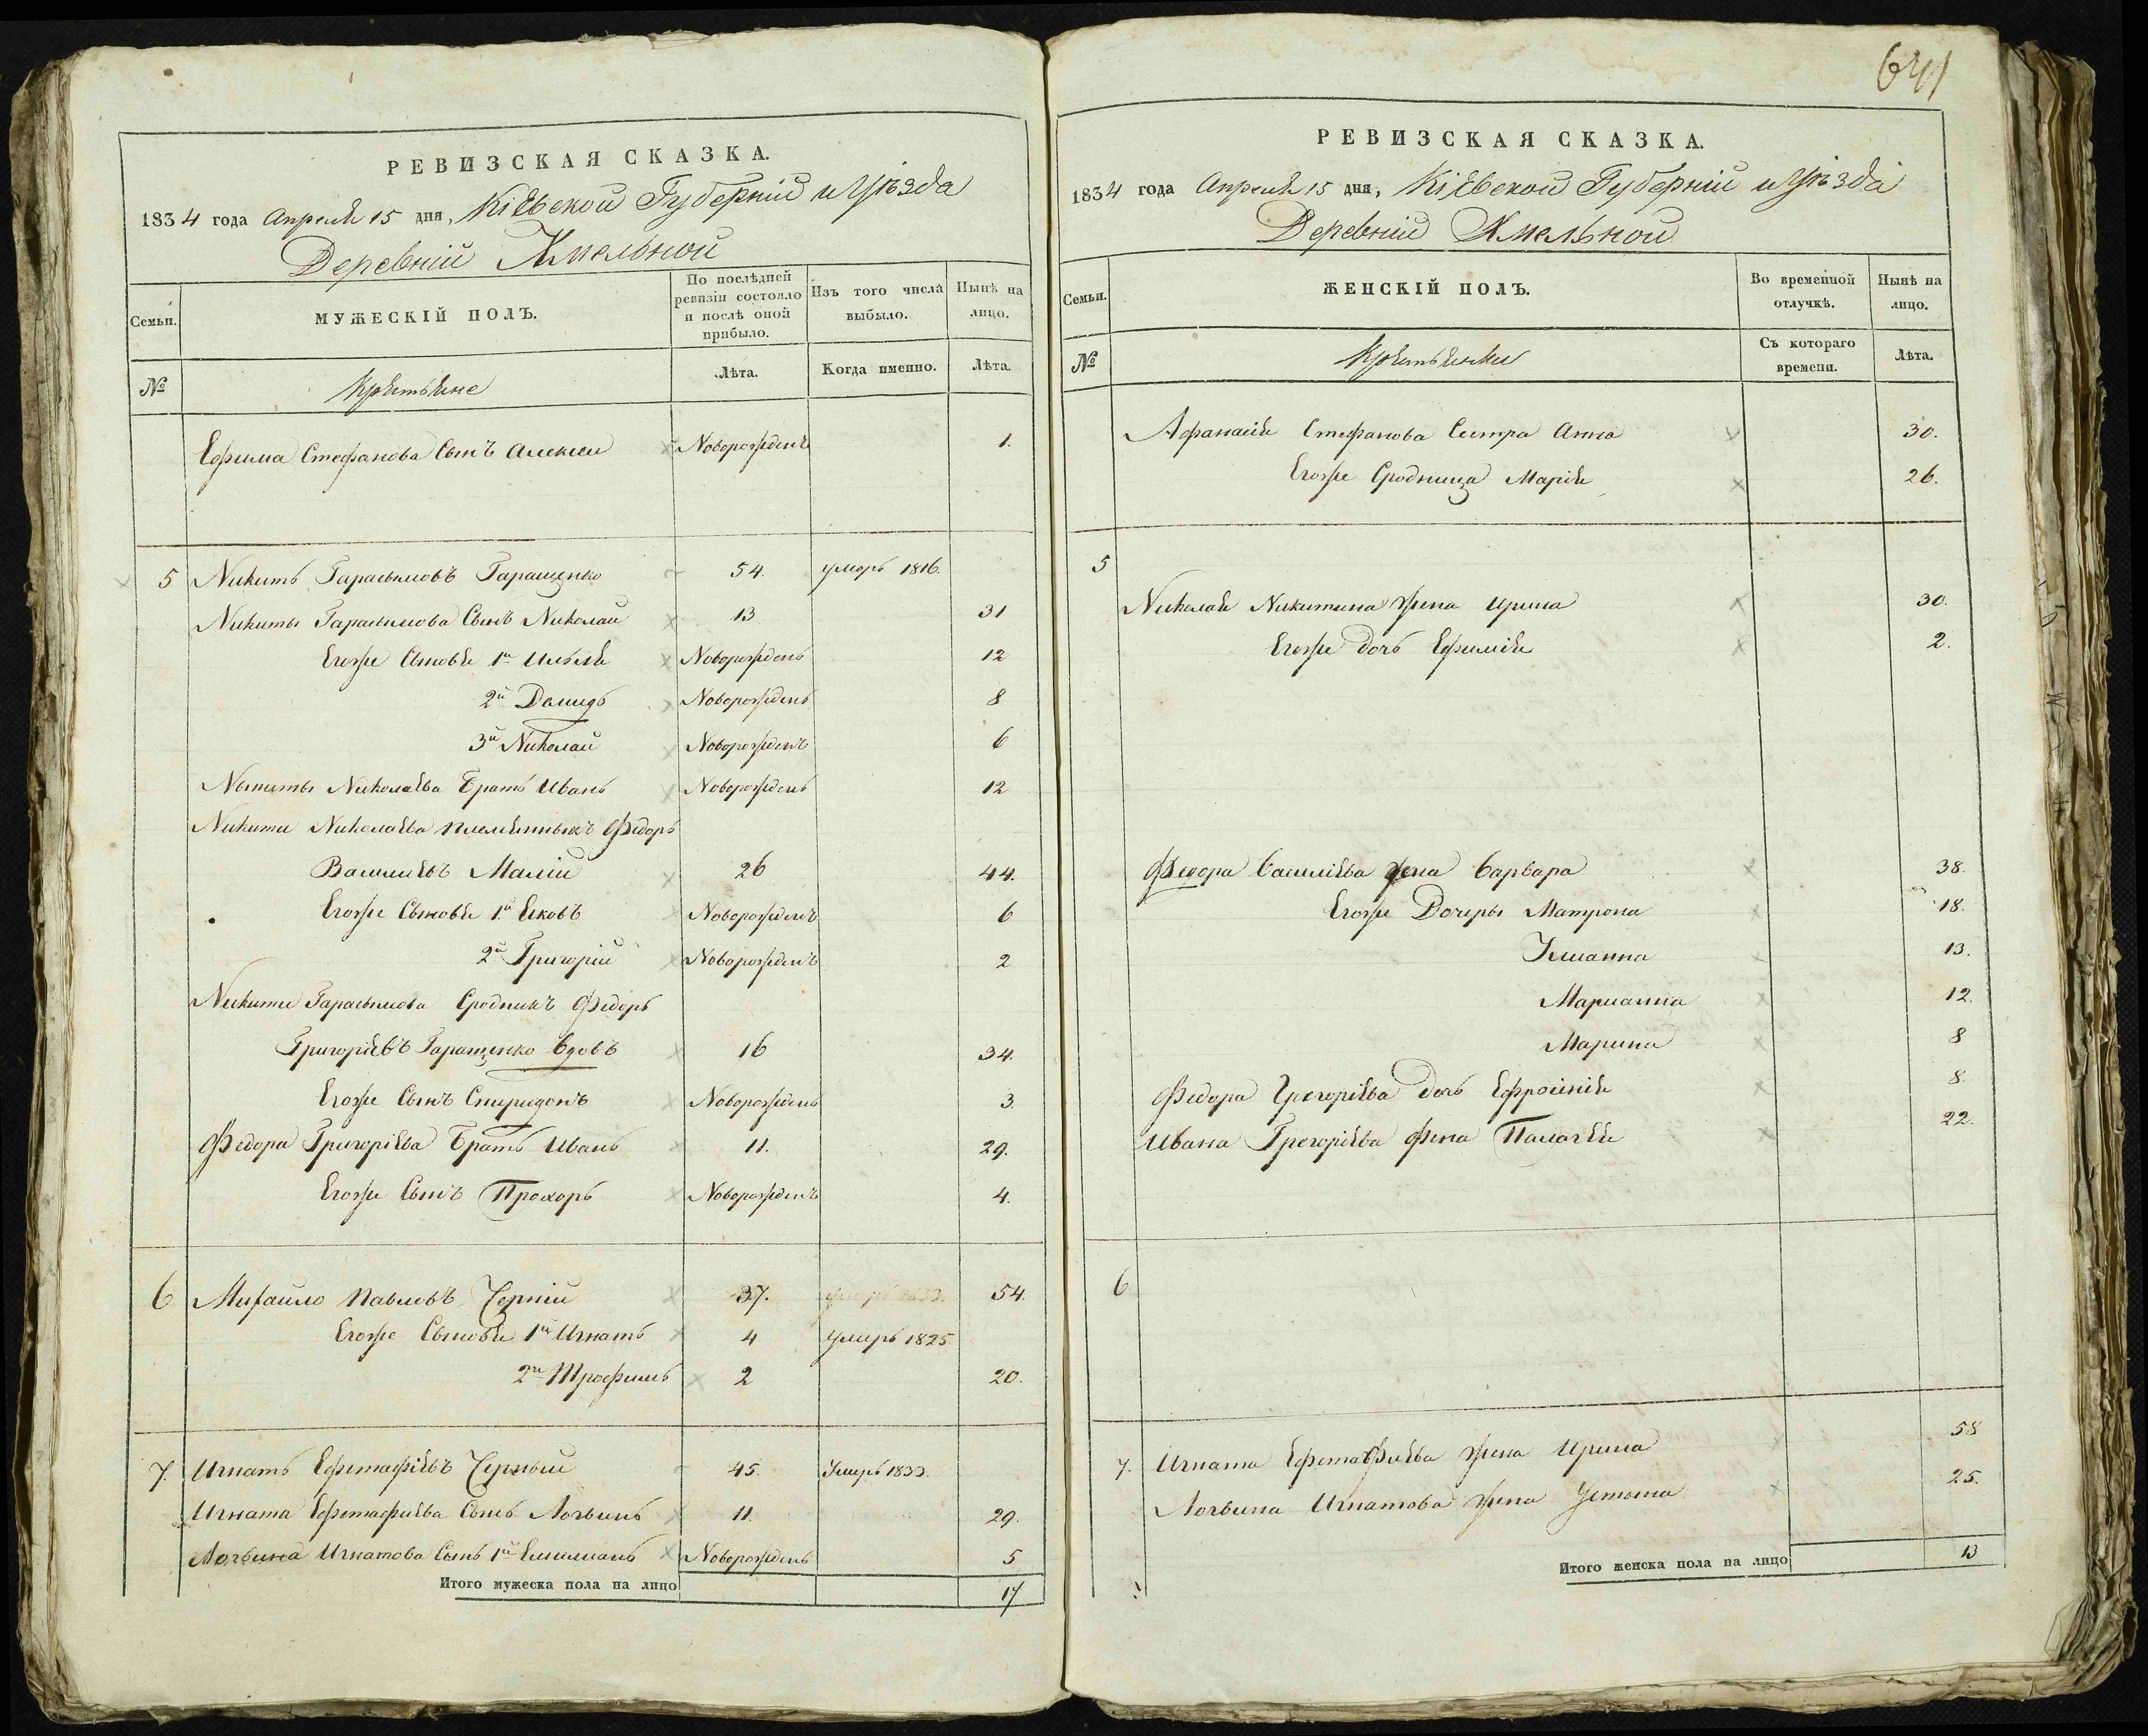 641
РЕВИЗСКАЯ СКАЗКА.
1834 года Апреля 15 дня, Кіевской Губерніи и Уѣзда
Деревніи Хмельной
Семьи.
МУЖЕСКІЙ ПОЛЪ.
По послѣдней ревизіи состояло и послѣ оной прибыло.
Изъ того числа выбыло.
Нынѣ на лицо.
№
Крѣстьяне
Лѣта.
Когда именно.
Лѣта.
Ефима Стефанова Сынъ Алексеи Новорожденъ 1.
5 Никитъ Гарасымовъ Гаращенко 54. умеръ 1816.
Никиты Гарасымова Сынъ Николай 13 31
Егоже Сыновья 1й Илья Новорожденъ 12
2й Давидъ Новорожденъ 8
3й Николай Новорожденъ 6
Николаева Братъ Иванъ Новорожденъ 12
Никити Николаева племянныкъ Федоръ
Василиевъ Малій 26 44.
Егоже Сыновья 1й Яковъ Новорожденъ 6
2й Григорій Новорожденъ 2
Никити Гарасымова Сродникъ Федоръ
Григоріевъ Гаращенко Вдовъ 16 34.
Егоже Сынъ Спиридонъ Новорожденъ 3.
Федора Григоріева Братъ Иванъ 11. 29.
Егоже Сынъ Прохоръ Новорожденъ 4.
6 Михайло Павловъ Черній 37. умеръ 54.
Егоже Сыновья 1й Игнатъ 4 умеръ 1825.
2й Трофимъ 2 20.
7. Игнатъ Ефстафіевъ Черный 45. Умеръ 1833.
Игната Ефстафиева Сынъ Логвинъ 11. 29.
Логвина Игнатова Сынъ 1й Емилианъ Новорожденъ 5
Итого мужеска пола на лицо 17
РЕВИЗСКАЯ СКАЗКА.
1834 года Апреля 15 дня, Кіевской Губерніи и Уѣзда
Деревніи Хмельной
Семьи.
ЖЕНСКІЙ ПОЛЪ.
Во временной отлучкѣ.
Нынѣ на лицо.
№
Крѣстьянки
Съ котораго времени.
Лѣта.
Афанасія Стефанова Сестра Анна 30.
Егоже Сродница Марія 26.
5
Николая Никитина жена Ирина 30.
Егоже дочь Ефимія 2.
Федора Василіева жена Варвара 38.
Егоже Дочеры Матрона 18.
13.
Марианна 12.
Марина 8
Федора Григоріева дочь Ефросинія 8.
Ивана Григоріева жена Палагея 22.
6
7. Игната Ефстафиева жена Ирина 58
Логвина Игнатова жена 25.
Итого женска пола на лицо 13